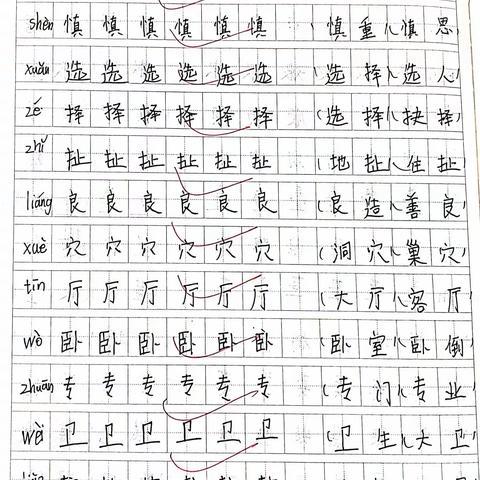 shèn 慎 慎 慎 慎 慎 慎 (慎重)(慎思)
xuǎn 选 选 选 选 选 选 (选择)(选人)
zé 择 择 择 择 择 择 (选择)(抉择)
zhǐ 址 址 址 址 址 址 (地址)(住址)
liáng 良 良 良 良 良 良 (良造)(善良)
xuè 穴 穴 穴 穴 穴 穴 (洞穴)(巢穴)
tīn 厅 厅 厅 厅 厅 厅 (大厅)(客厅)
wò 卧 卧 卧 卧 卧 卧 (卧室)(卧倒)
zhuān 专 专 专 专 专 专 (专门)(专业)
wèi 卫 卫 卫 卫 卫 卫 (卫生)(大卫)